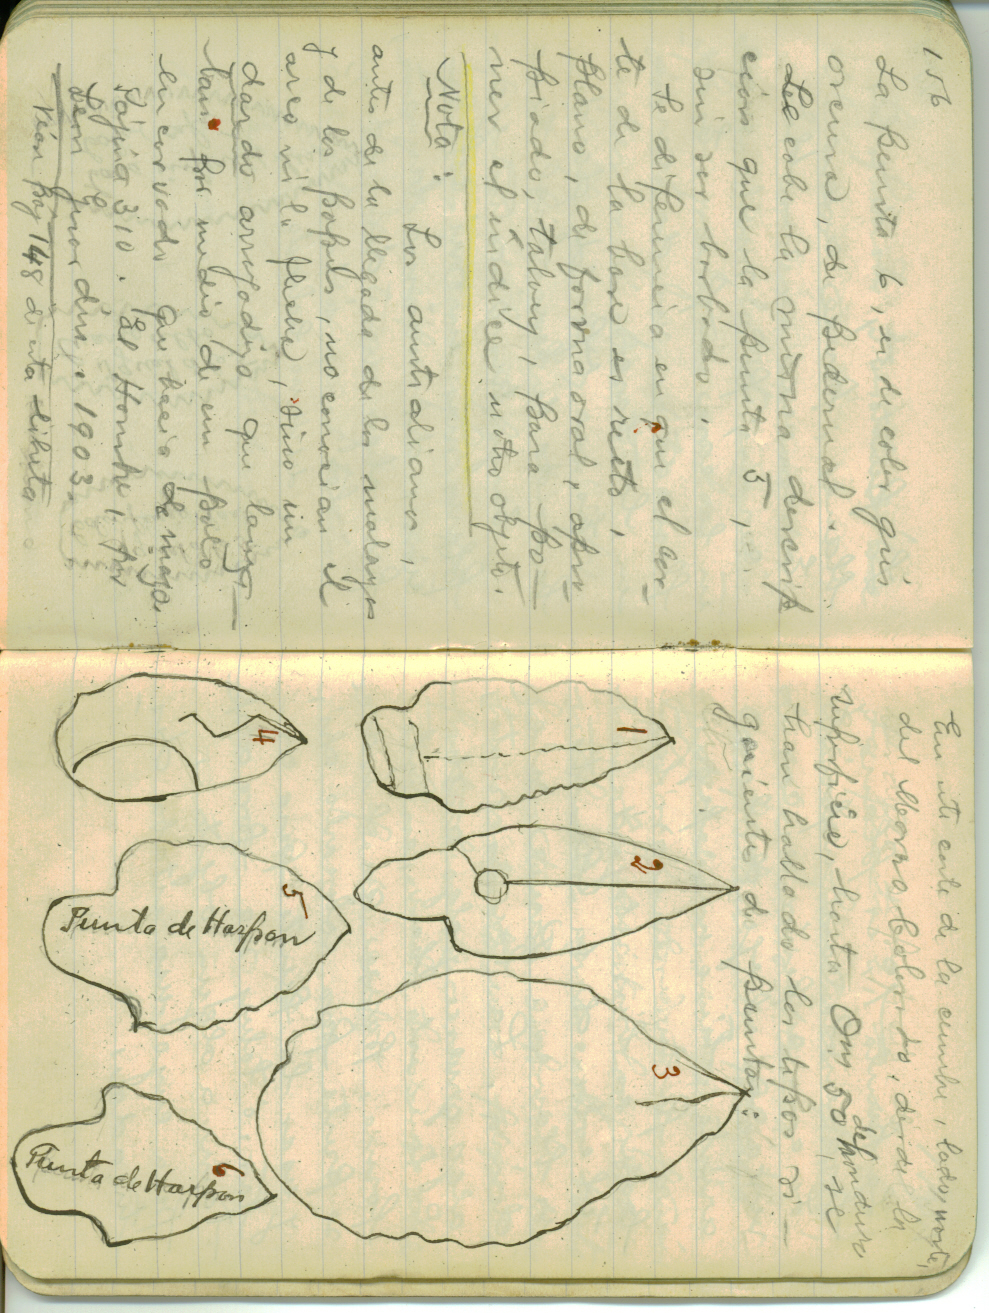 156
La punta 6, es de color gris
oscura, de pedernal.
Le cabe la misma descrip
cion que la punta 5,
sin ser bordado.
Se diferencia en que el cor-
te de la base es recto,
plano, de forma oval, apro
piado, talvez, para po-
ner el indice u otro objeto.
Nota: Los australianos,
antes de la llegada de los malayos
y de los papúes, no conocian el
arco ni la flecha, sino un
dardo arrojadizo que lanza-
ban por medio de un palo
encorvado que hacia de
Página 310. El Hombre, por
Leon 1903.
Vean pag 148 de esta libreta
En este corte de la cumbre, lado, norte,
del Morro Colorado, desde la
superficie, hasta 0m, 50 de hondura se
han hallado los tipos si-
guientes de puntas:
1
2
3
4
5
Punta de Harpon
6
Punta de Harpon